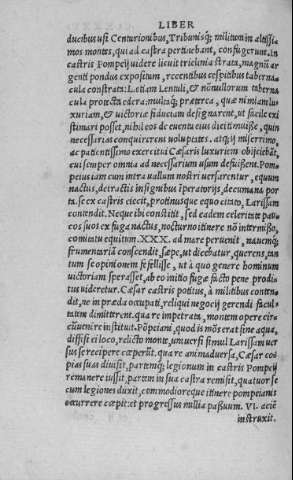 LIBER
ducibus usi Centurionibus, Tribunisq; militum in altissi
mos montes, qui ad castra pertinebant, confugerunt. In
castris Pompeij uidere licuit triclinia strata, magni ar
genti pondus expositum, recentibus cespitibus taberna
cula constrata: L. etiam Lentuli, & nonnullorum taberna
cula protecta edera: multaq; præterea, quæ nimiam lu
xuriam, & uictoriæ fiduciam designarent, ut facile exi
stimari posset, nihil eos de euentu eius diei timuisse, qui non
necessarias conquirerent uoluptates. at hi miserrimo,
ac patientissimo exercitui Cæsaris luxuriem obijciebāt,
cui semper omnia ad necessarium usum defuissent. Pom
peius iam cum intra uallum nostri uersarentur, equum
nactus, detractis insignibus imperatorijs, decumana por
ta se ex castris eiecit, protinusque equo citato, Larissam
contendit. Neque ibi constitit, sed eadem celeritate pau
cos suos ex fuga nactus, nocturno itinere nō intermisso,
comitatu equitum .XXX. ad mare peruenit, nauemq;
frumentariā conscendit, sæpe, ut dicebatur, querens, tan
tum se opinionem fefellisse, ut à quo genere hominum
uictoriam sperasset, ab eo initio fugæ facto pene prodi
tus uideretur. Cæsar castris potitus, à militibus conten
dit, ne in præda occupati, reliqui negocij gerendi facul
tatem dimitterent. qua re impetrata, montem opere cir
cūuenire instituit. Pōpeiani, quod is mōs erat sine aqua,
diffisi ei loco, relicto monte, uniuersi simul Larissam uer
sus se recipere cœperūt. qua re animaduersa, Cæsar co
pias suas diuisit, partemq; legionum in castris Pompeij
remanere iussit, partem in sua castra remisit, quatuor se
cum legiones duxit, commodioreque itinere pompeianis
occurrere cœpit: et progressus millia passuum. VI. aciē
instruxit.